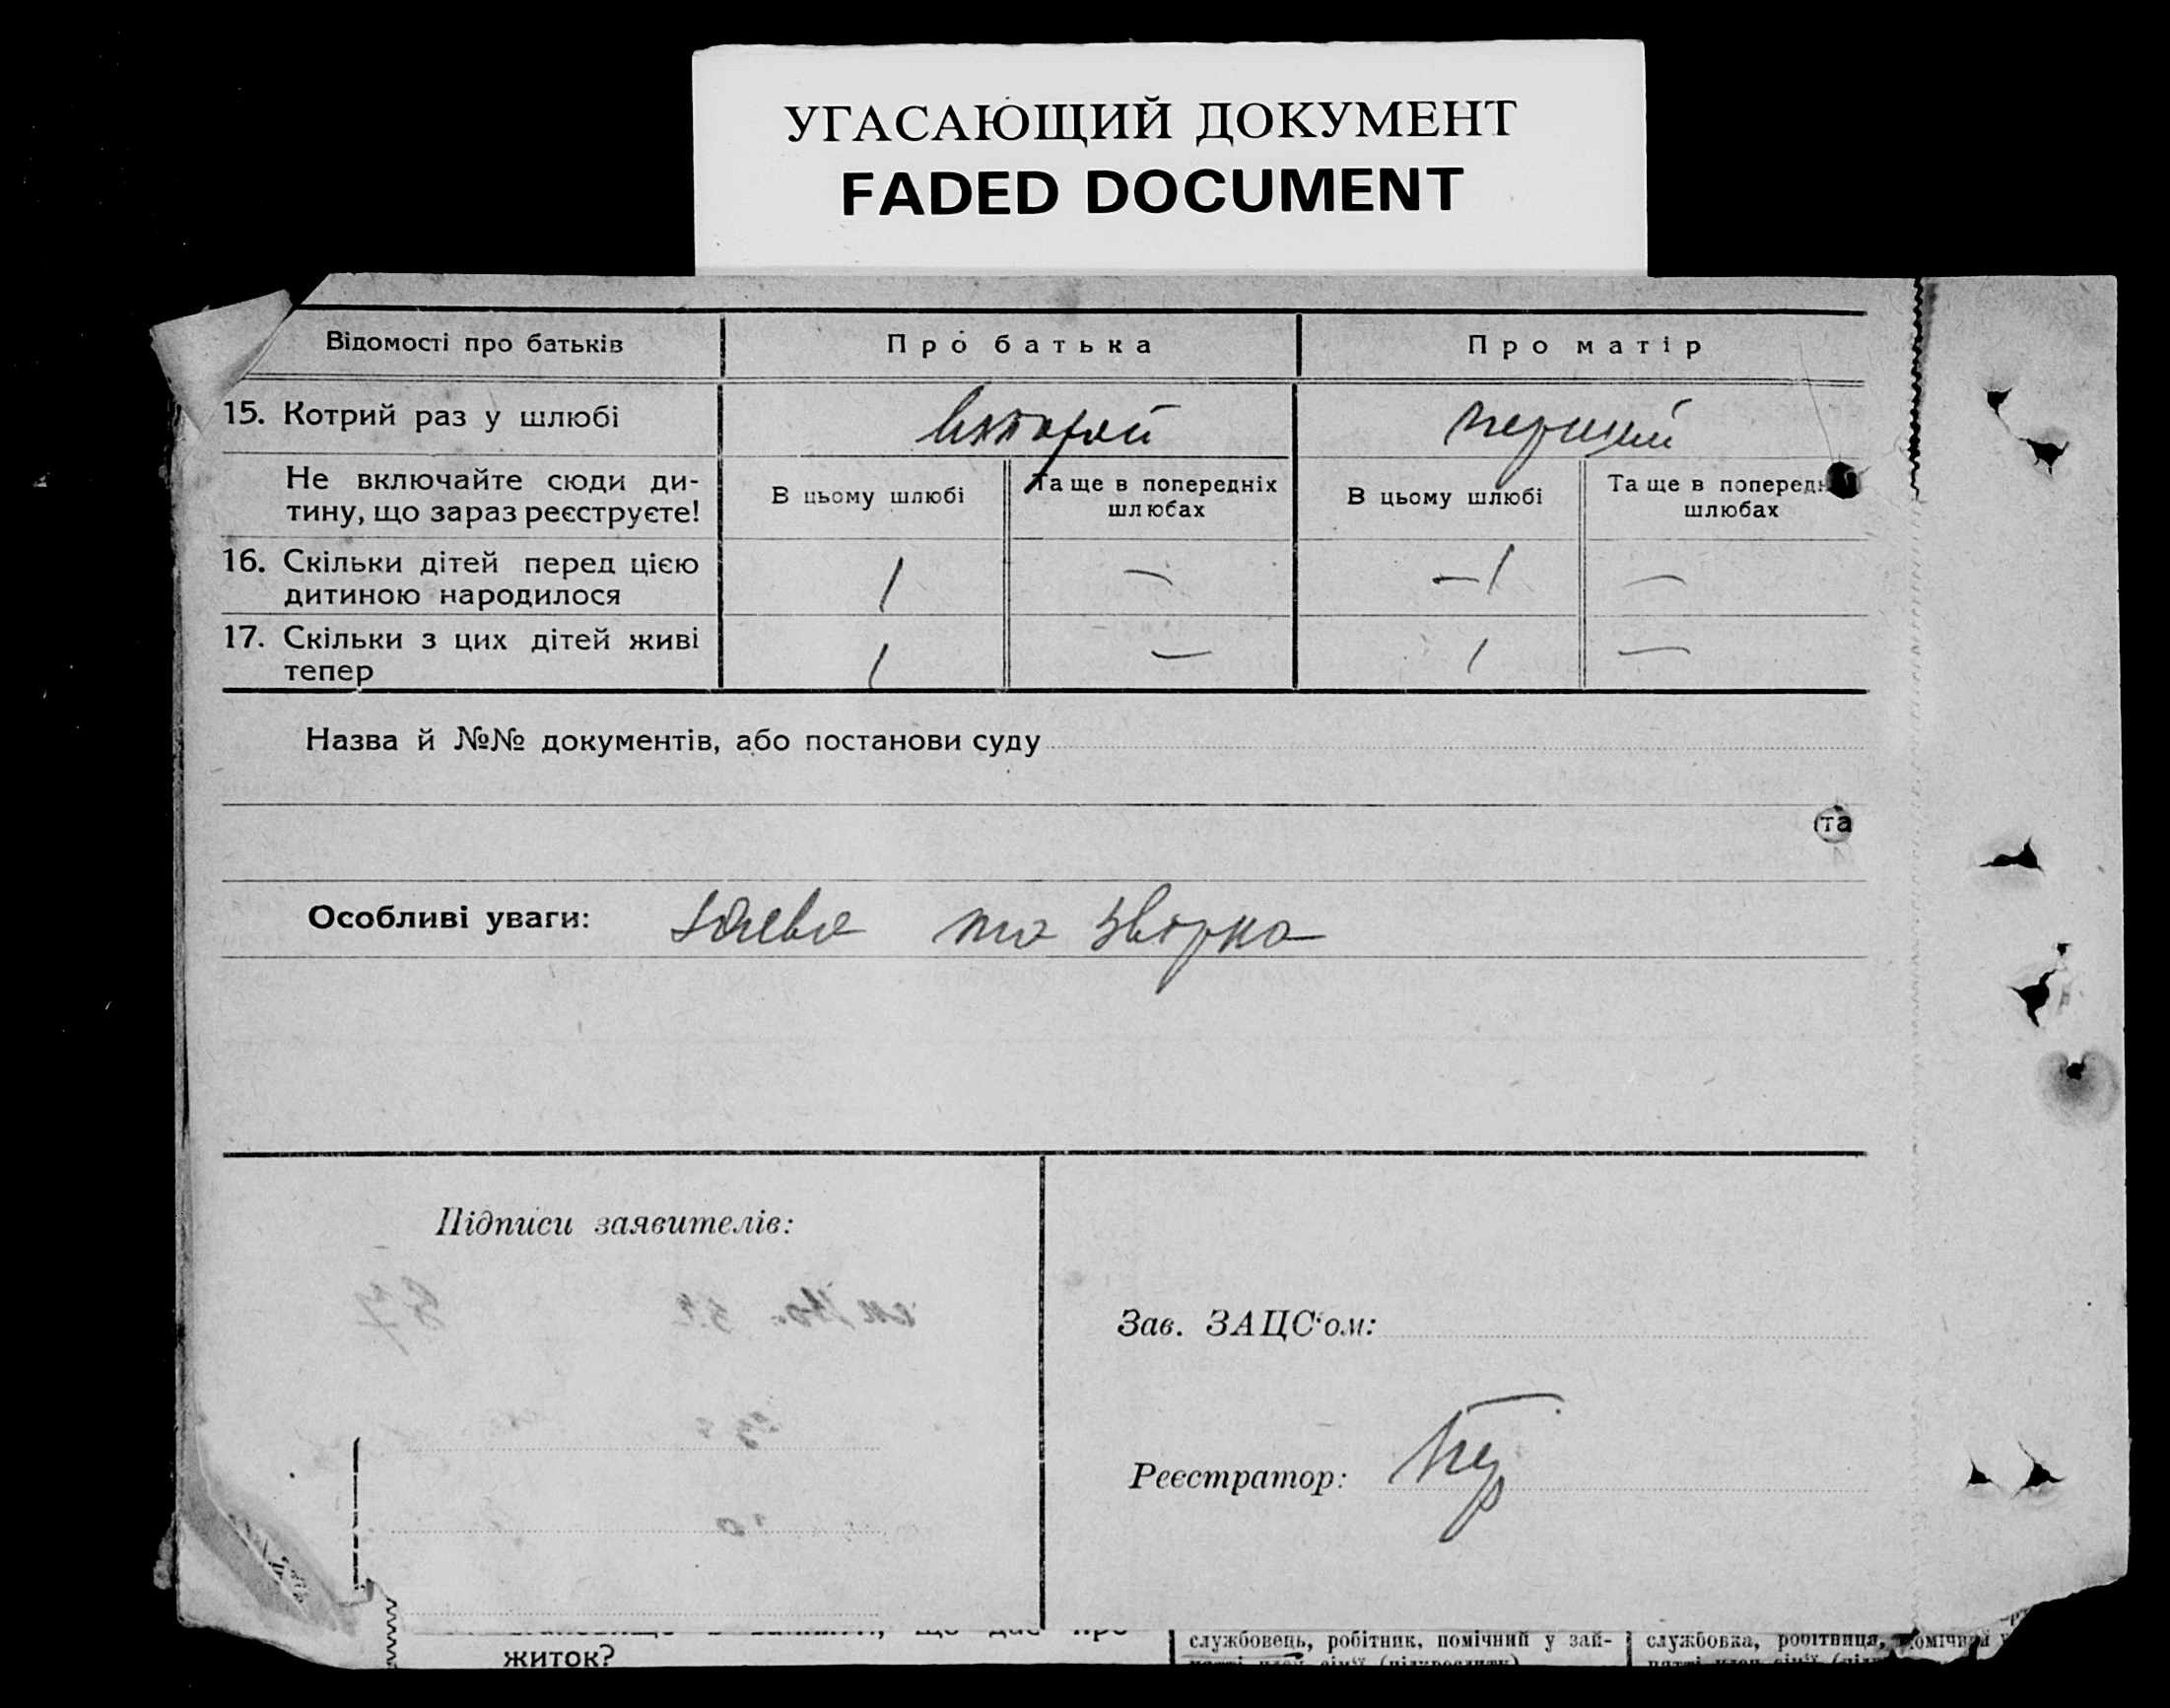 УГАСАЮЩИЙ ДОКУМЕНТ
FADED DOCUMENT
Відомості про батьків
Про батька
Про матір
15. Котрий раз у шлюбі
второй
перший
Не включайте сюди ди-
тину, що зараз реєструєте!
В цьому шлюбі
Та ще в попередніх
шлюбах
В цьому шлюбі
Та ще в поперед
шлюбах
16. Скільки дітей перед цією
дитиною народилося
1
—
—1
—
17. Скільки з цих дітей живі
тепер
1
—
1
—
Назва й №№ документів, або постанови суду
та
Особливі уваги:
та
Підписи заявителів:
Зав. ЗАЦС'ом:
Реєстратор:
житок?
службовець, робітник, помічний у зай-
службовка, робітниця,